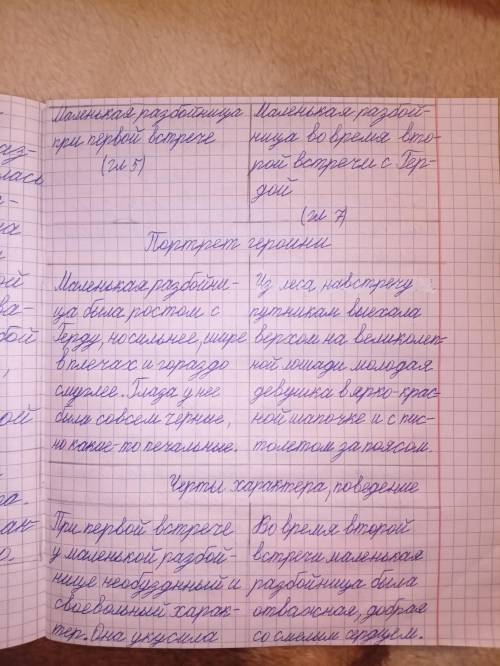 Маленькая разбойница
при первой встрече
(гл 5)
Маленькая разбой-
ница во время вто-
рой встречи с Гер-
дой
(гл 7)
Портрет героини
Маленькая разбойни-
ца была ростом с
Герду, но сильнее, шире
в плечах и гораздо
смуглее. Глаза у неё
были совсем чёрные,
но какие-то печальные.
Из леса навстречу
путникам выехала
верхом на великолеп-
ной лошади молодая
девушка в ярко-крас-
ной шапочке и с пис-
толетом за поясом.
Черты характера, поведение
При первой встрече
у маленькой разбой-
нице необузднный и
своевольный харак-
тер. Она укусила
Во время второй
встречи маленькая
разбойница была
отважная, добрая
со смелым сердцем.